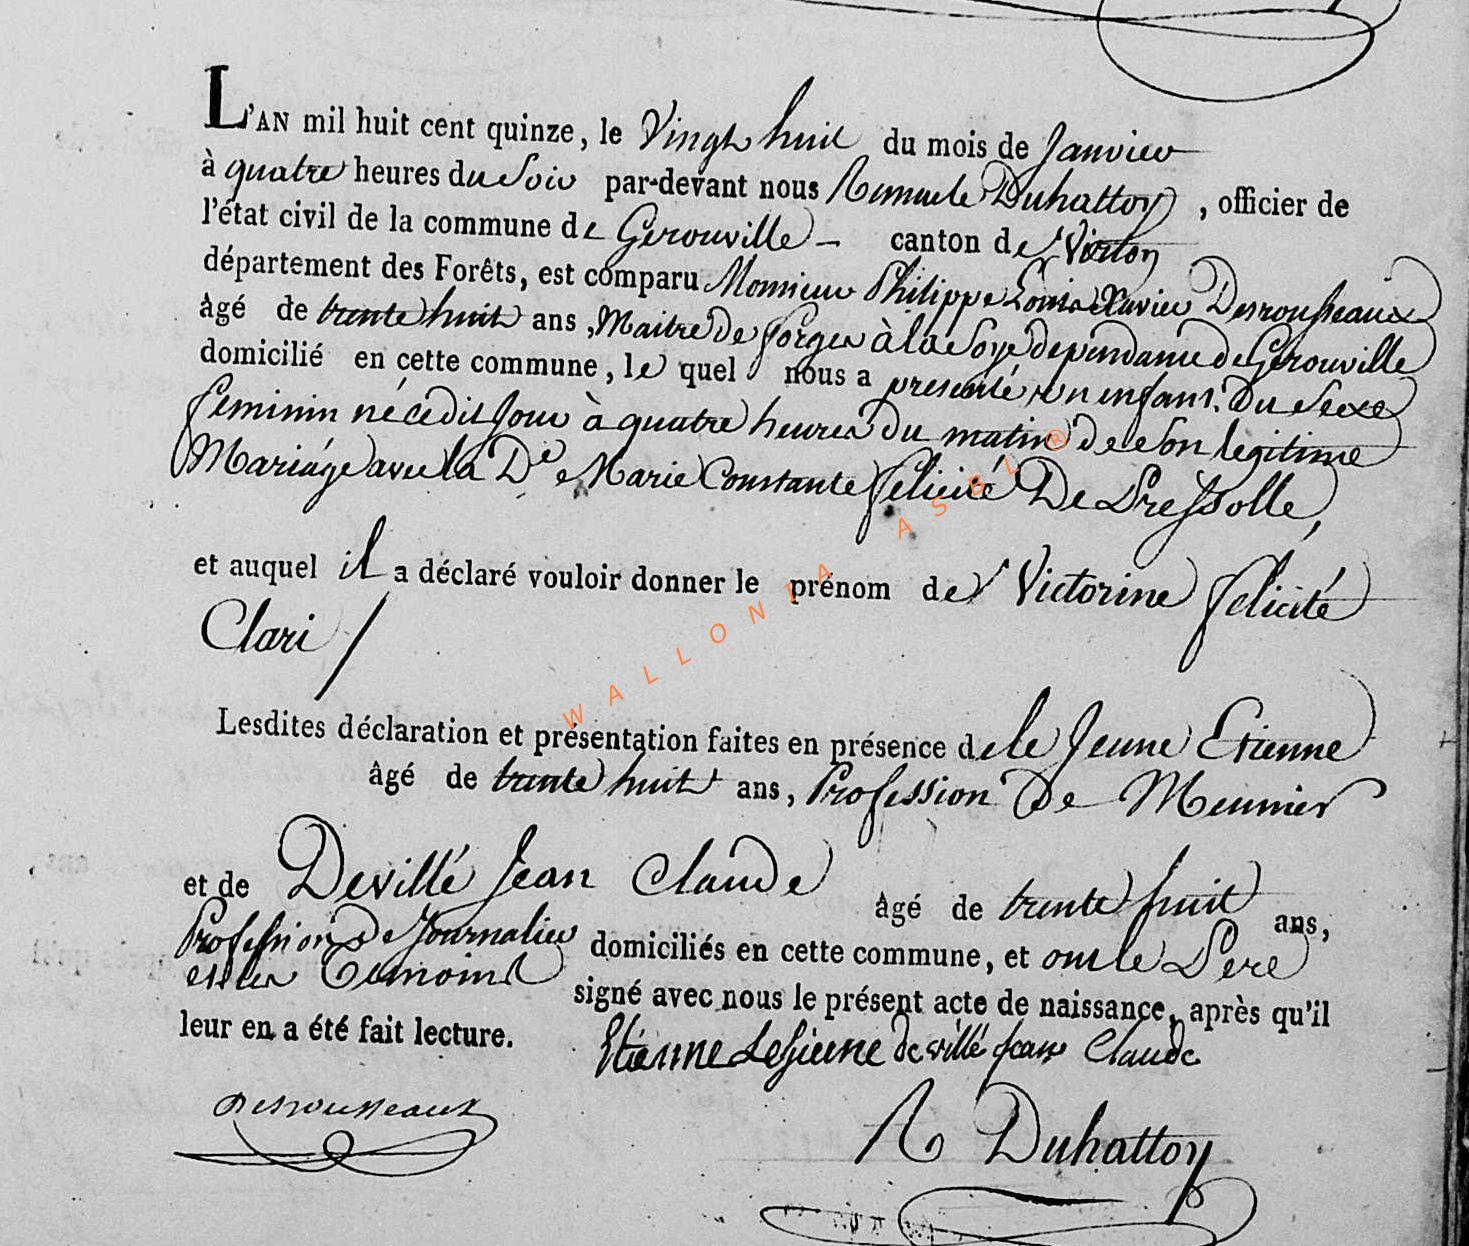 L'AN mil huit cent quinze, le Vingt huit du mois de Janvier
à quatre heures du Soir par-devant nous Duhattoy, officier de
l'état civil de la commune de Gerouville – canton de Virton
département des Forêts, est comparu Monsieur Philippe Louis Xavier Desrousseaux
âgé de trente huit ans, Maitre de forges à la Soye dependance de Gerouville
domicilié en cette commune, le quel nous a presenté un enfant du Sexe
feminin né cedit Jour à quatre heures du matin de Son legitime
Mariáge avec la De Marie Constante felicité De Pressolle,
et auquel il a déclaré vouloir donner le prénom de Victorine felicité
Clari /
WALLONIA ASBL ®
Lesdites déclaration et présentation faites en présence de le Jeune Etienne
âgé de trente huit ans, Profession De Meunier
et de Devillé Jean Claude âgé de trente huit ans,
Profession De Journalier domiciliés en cette commune, et ont le Pere
et les Temoins signé avec nous le présent acte de naissance, après qu'il
leur en a été fait lecture.
Etienne LeJeune de villé Jean Claude
Desrousseaux
R Duhattoy